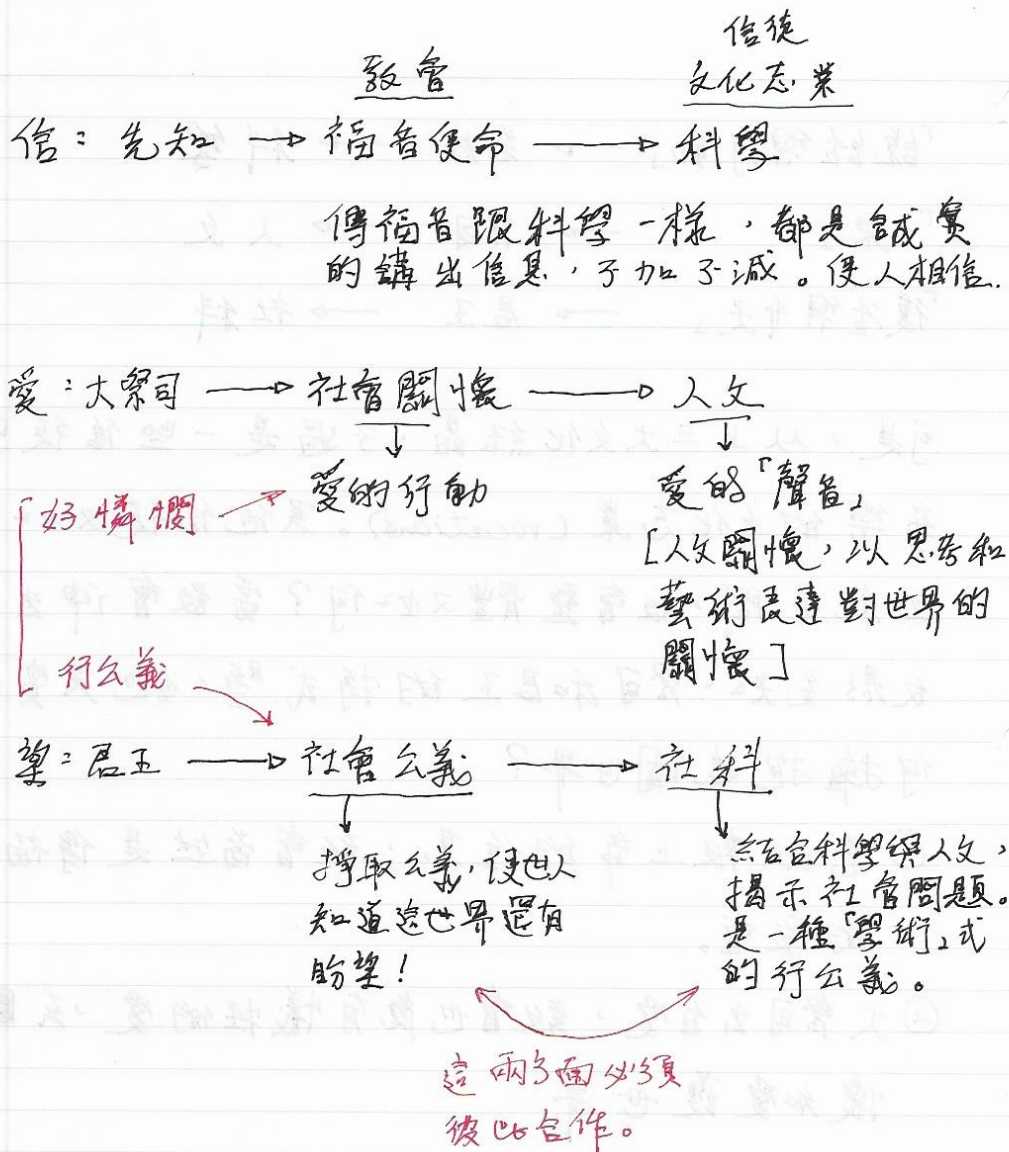 信徒
教會 文化志業
信：先知 → 福音使命 → 科學
傳福音跟科學一樣，都是誠實
的講出信息，不加不減。使人相信.
愛：大祭司 → 社會關懷 → 人文
愛的行動
愛的「聲音」
「好憐憫
[人文關懷，以思考和
藝術表達對世界的
關懷]
行公義
望：君王 → 社會公義 → 社科
掙取公義，使世人
知道這世界還有
盼望！
結合科學與人文，
揭示社會問題。
是一種「學術」式
的行公義。
這兩方面必須
彼此合作。